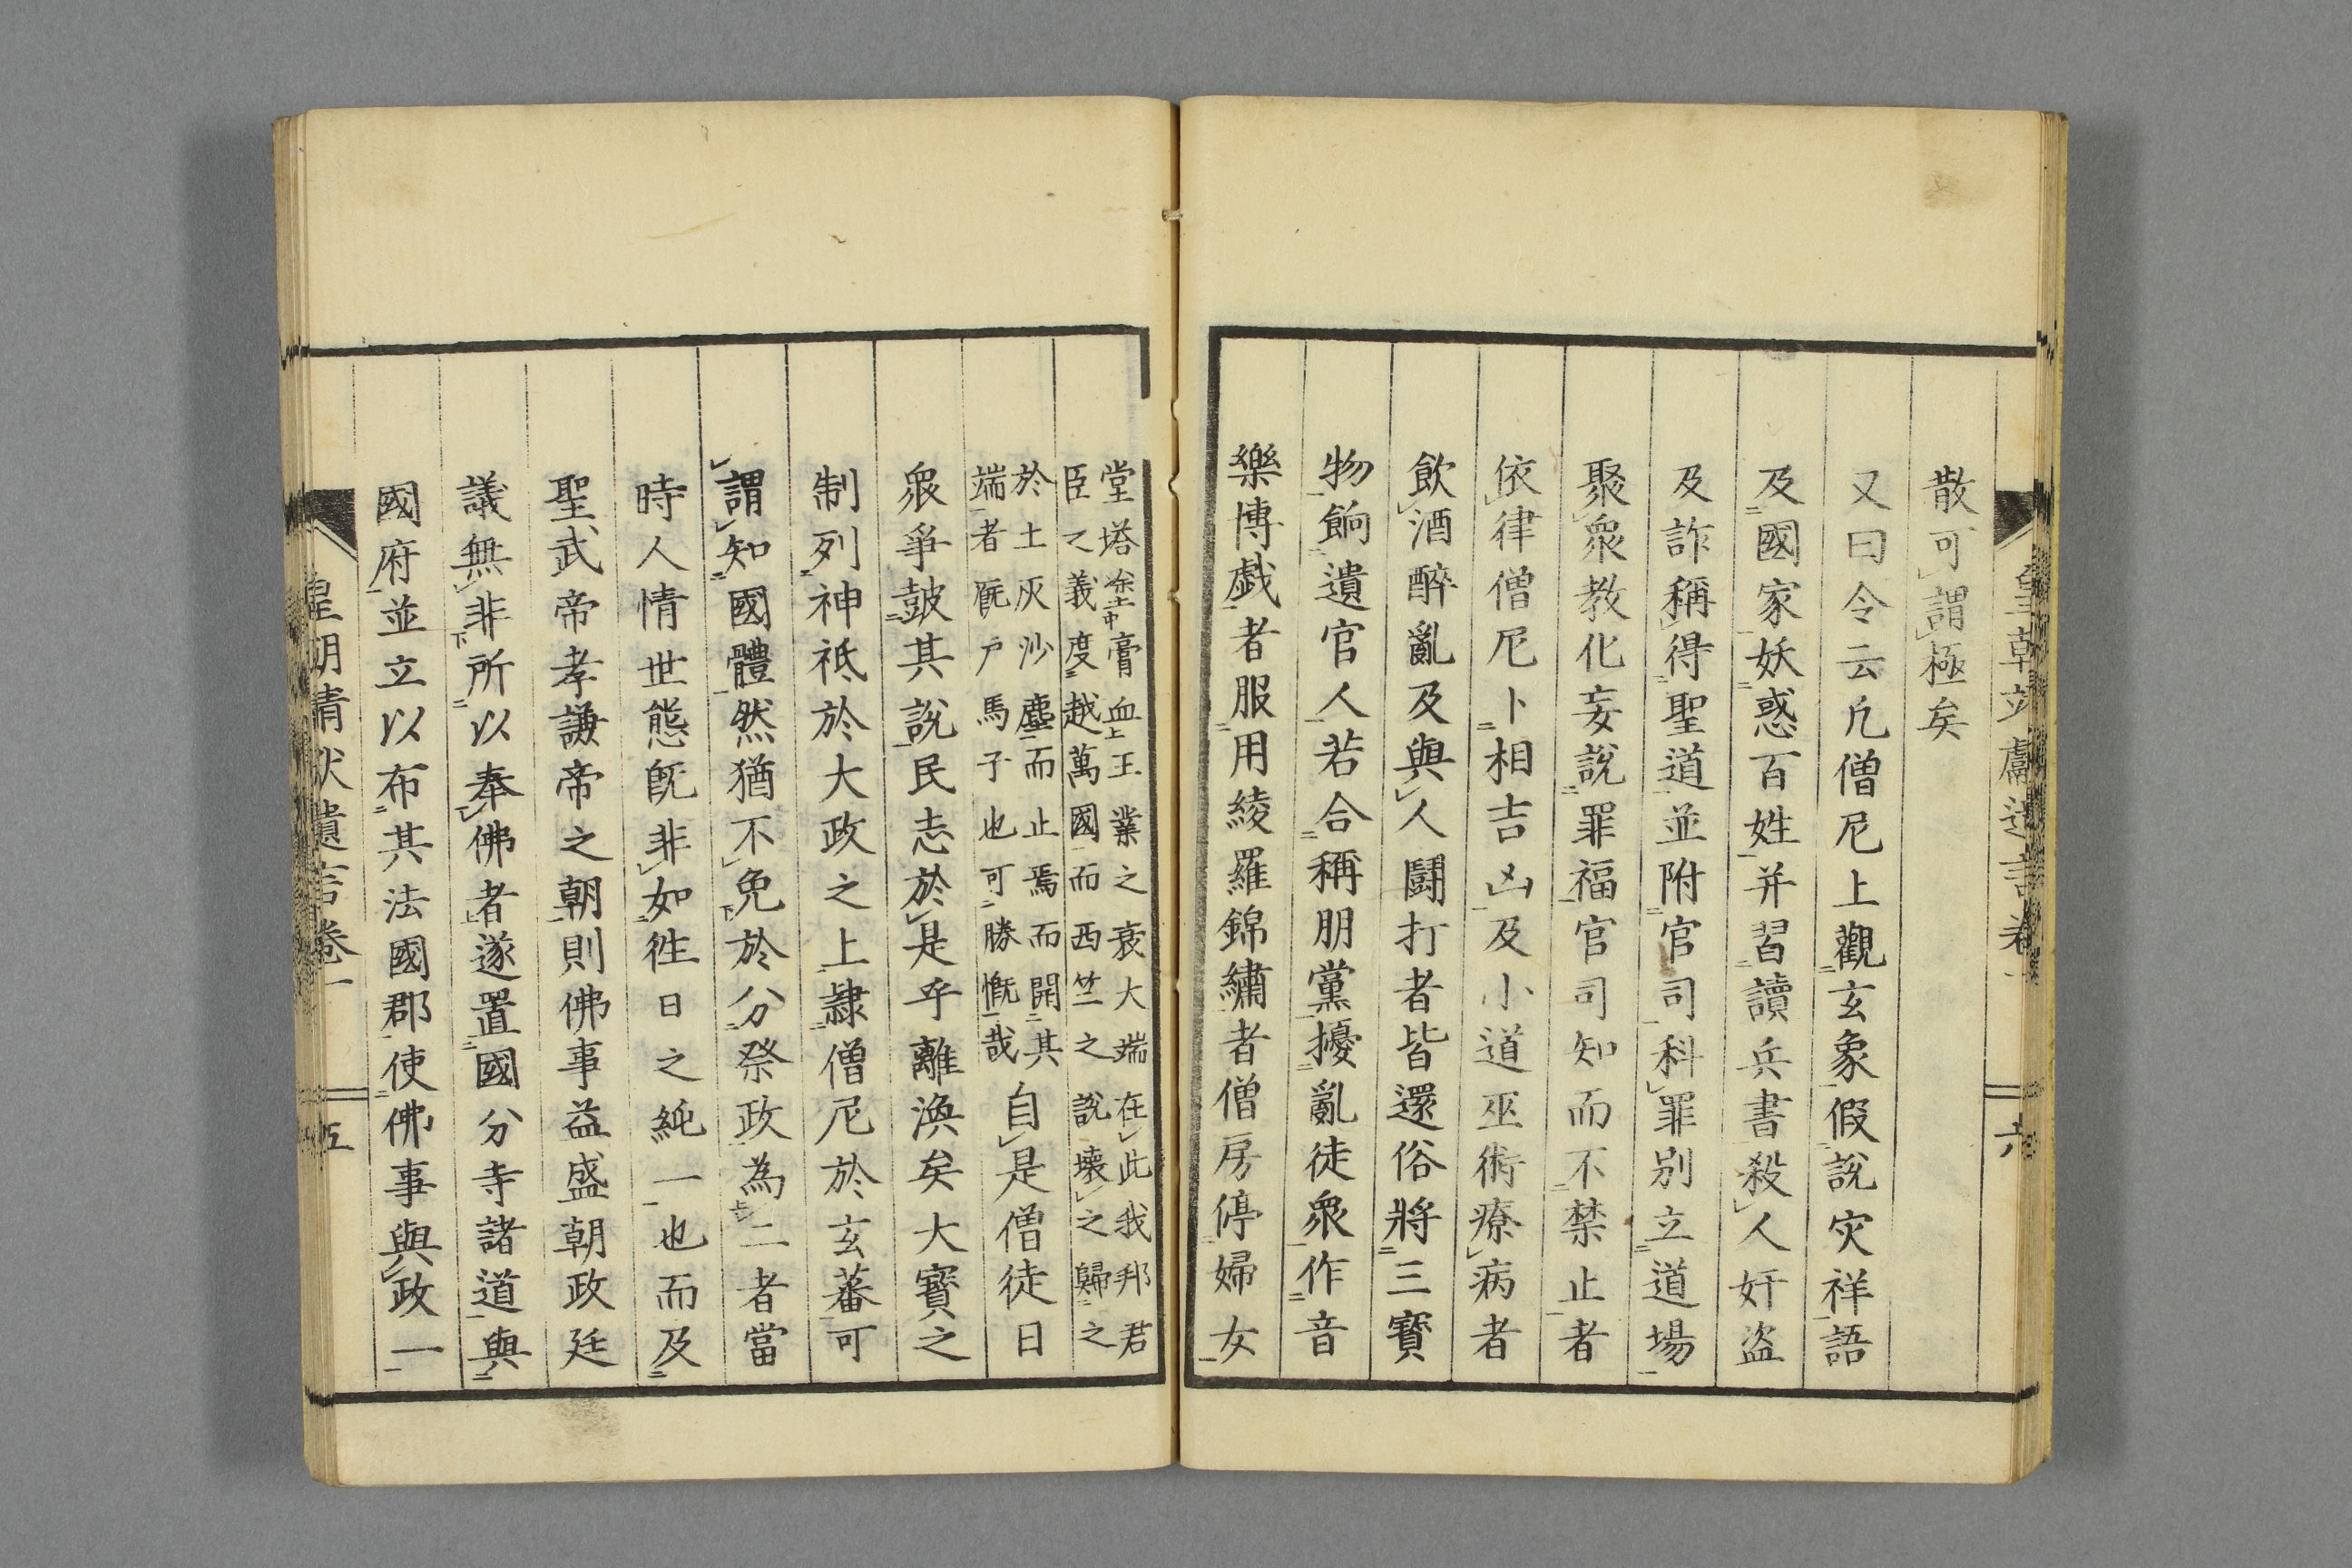 皇朝靖獻遺言卷一 六
散可謂極矣
又曰令云凢僧尼上觀玄象假說灾祥語
及國家妖惑百姓并習讀兵書殺人奸盗
及詐稱得聖道並附官司科罪別立道場
聚衆教化妄說罪福官司知而不禁止者
依律僧尼卜相吉凶及小道巫術療病者
飲酒醉亂及與人鬪打者皆還俗將三寶
物餉遺官人若合稱朋黨擾亂徒衆作音
樂博戯者服用綾羅錦繡者僧房停婦女
堂塔塗膏血王業之衰大端在此我邦君
臣之義度越萬國而西竺之說壞之歸之
於土灰沙塵而止焉而開其
端者厩戶馬子也可勝慨哉
自是僧徒日
衆爭鼓其說民志於是乎離渙矣大寶之
制列神祇於大政之上隷僧尼於玄蕃可
謂知國體然猶不免於分祭政為二者當
時人情世態旣非如徃日之純一也而及
聖武帝孝謙帝之朝則佛事益盛朝政廷
議無非所以奉佛者遂置國分寺諸道與
國府並立以布其法國郡使佛事與政一
皇朝靖獻遺言卷一 五